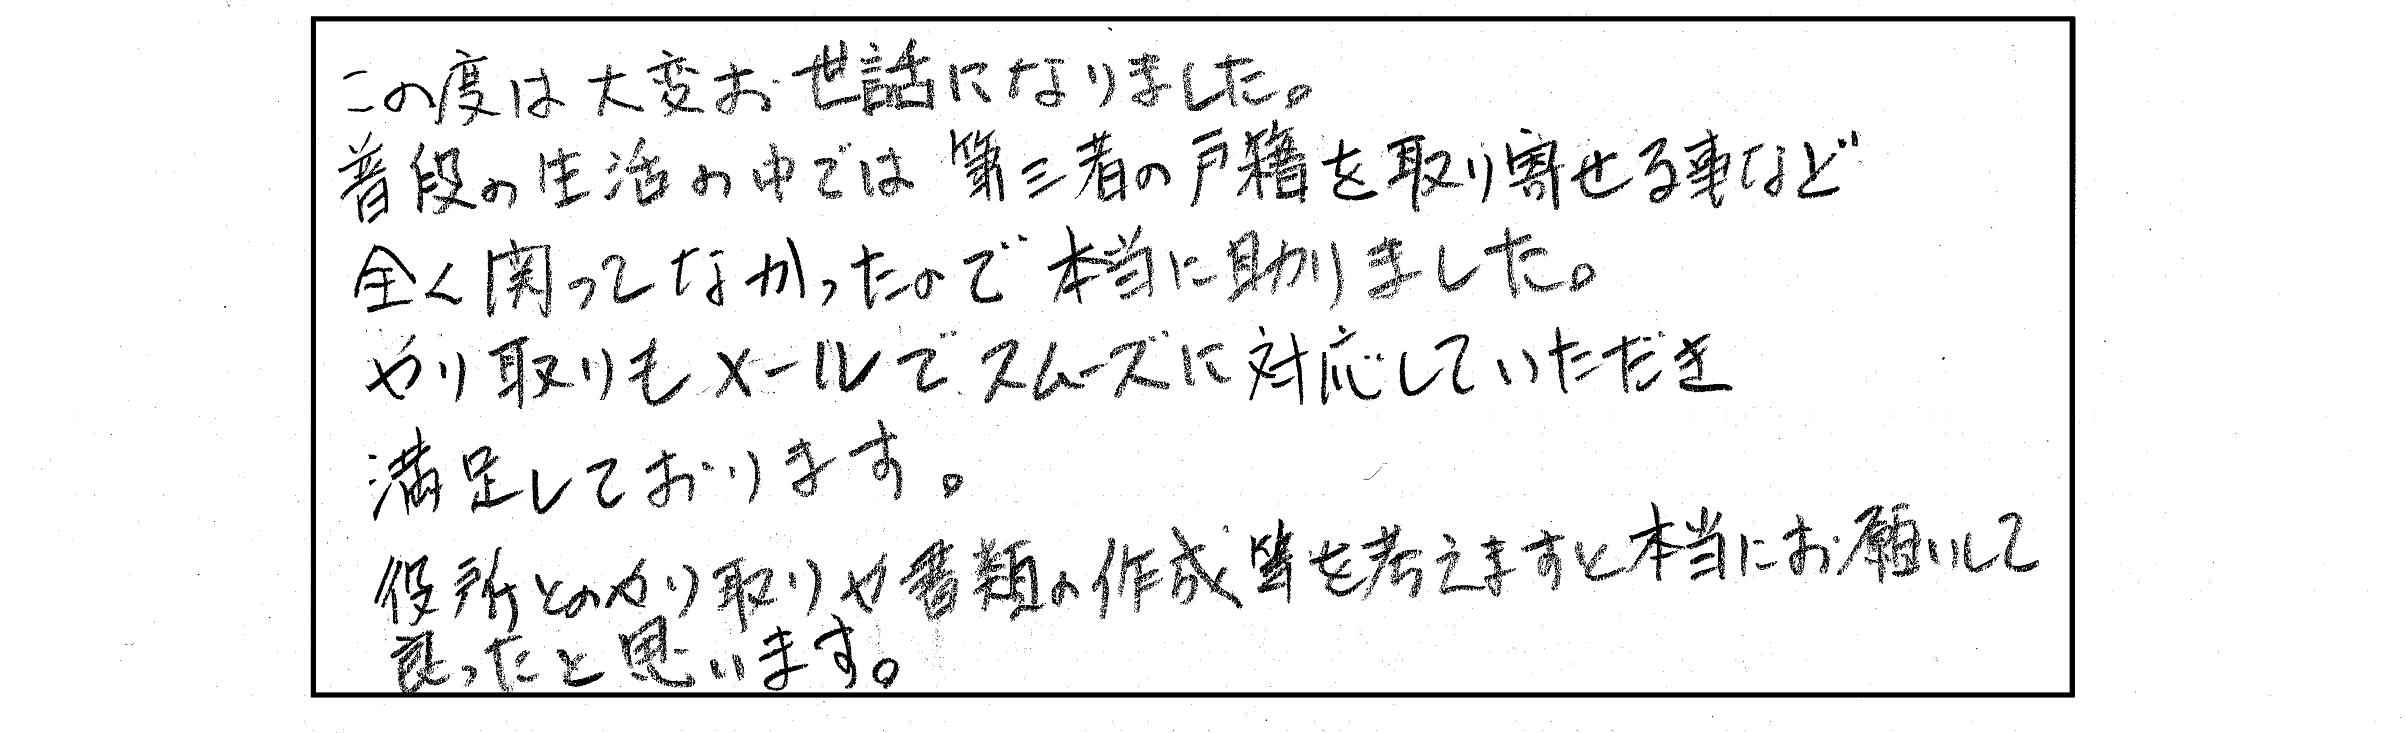 この度は大変お世話になりました。
普段の生活の中では第三者の戸籍を取り寄せる事など
全く関ってなかったので本当に助りました。
やり取りもメールでスムーズに対応していただき
満足しております。
役所とのやり取りや書類の作成等を考えますと本当にお願いして
良ったと思います。